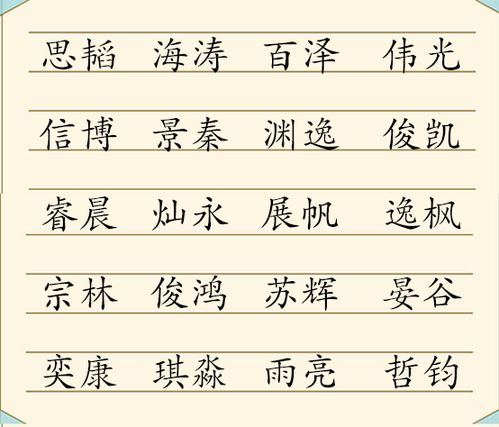 思韬 海涛 百泽 伟光
信博 景秦 渊逸 俊凯
睿晨 灿永 展帆 逸枫
宗林 俊鸿 苏辉 晏谷
奕康 琪淼 雨亮 哲钧